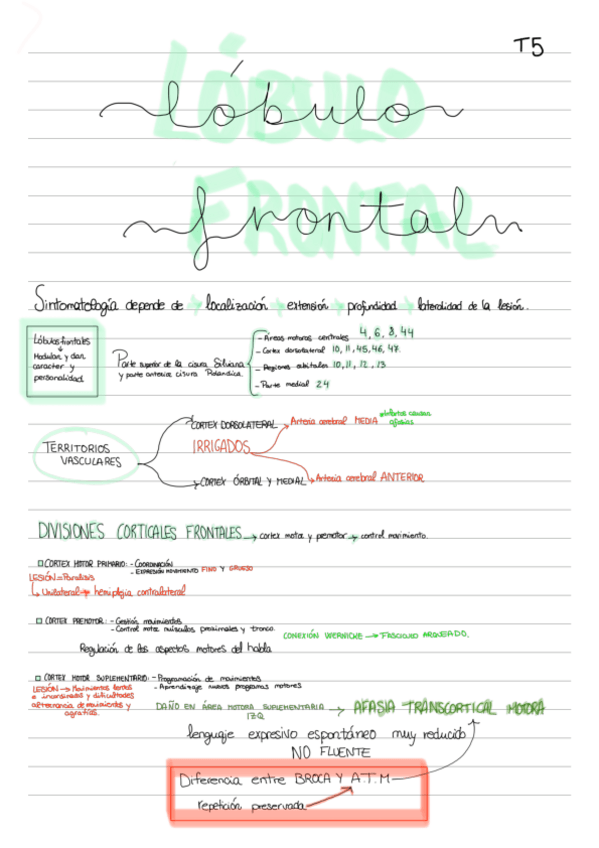 T5
LÓBULO
lóbulo
FRONTAL
frontal
Sintomatología depende de → localización → extensión → profundidad → lateralidad de la lesión.
Lóbulos frontales
↓
Modulan y dan
caracter y
personalidad.
Parte superior de la cisura Silviana
y parte anterior cisura Rolándica
- Áreas motoras centrales 4, 6, 8, 44
- Cortex dorsolateral 10, 11, 45, 46, 47.
- Regiones orbitales 10, 11, 12, 13
- Parte medial 24
TERRITORIOS
VASCULARES
CORTEX DORSOLATERAL
IRRIGADOS
CORTEX ÓRBITAL Y MEDIAL
Arteria cerebral MEDIA → Infartos causan
afasias
Arteria cerebral ANTERIOR
DIVISIONES CORTICALES FRONTALES → cortex motor y premotor → control movimiento.
CORTEX MOTOR PRIMARIO: - COORDINACIÓN
- EXPRESIÓN MOVIMIENTO FINO Y GRUESO
LESIÓN = Parálisis
↳ Unilateral → hemiplejia contralateral
CORTEX PREMOTOR: - Gestión movimientos
- Control motor músculos proximales y tronco.
CONEXIÓN WERNICKE → FASCICULO ARQUEADO.
Regulación de los aspectos motores del habla
CORTEX MOTOR SUPLEMENTARIO: - Programación de movimientos
- Aprendizaje nuevos programas motores
LESIÓN → Movimientos lentos
e incoordinados y dificultades
alternancia de movimientos y
agrafias.
DAÑO EN ÁREA MOTORA SUPLEMENTARIA
IZQ
→ AFASIA TRANSCORTICAL MOTORA
lenguaje expresivo espontáneo muy reducido
NO FLUENTE
Diferencia entre BROCA Y A.T.M
repetición preservada